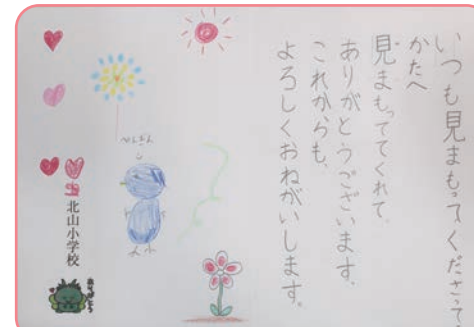 いつも見まもってくださって
かたへ
見まもっててくれて、
ありがとうございます。
これからも、
よろしくおねがいします。
ぺんぎん
北山小学校
ありがとう